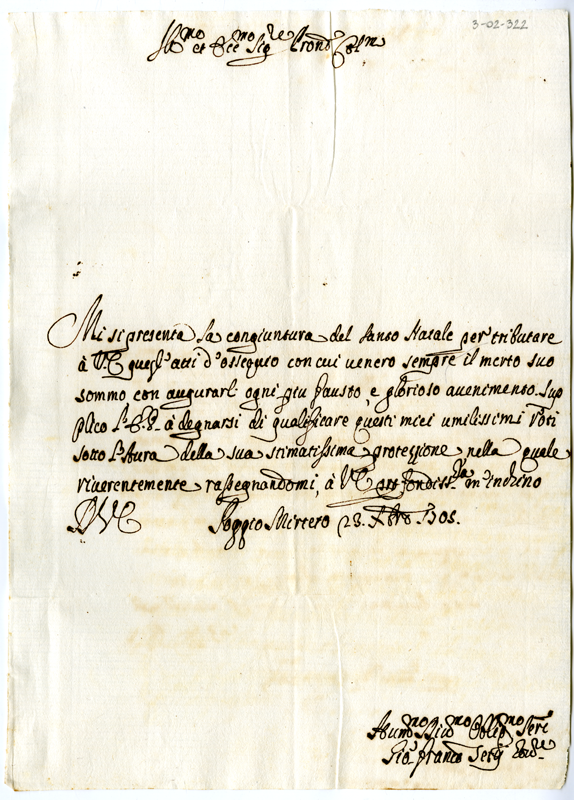 3-02-322
Ill.mo et Ecc.mo Sig.re Pron Col.mo
Mi si presenta la congiuntura del Santo Natale per tributare
à V.E. quegl'atti d'ossequio con cui venero sempre il merto suo
sommo con augurarli ogni piu fausto, e glorioso avenimento. Sup
plico l'E.V. à degnarsi di qualificare questi miei umilissimi Voti
sotto l'Aura della sua stimatissima protezzione, nella quale
riverentemente rassegnandomi, à V.E. profondiss.te m'inchino
D V E Poggio Mirteto 23. Xbre 1705.
Devmo Oblig.mo Ser.e
Gio. Franco